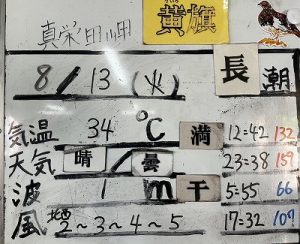 真栄田岬 黄旗
8/13(火) 長潮
気温 34 ℃ 満 12:42 132
天気 晴/曇 23:38 159
波 1 m 干 5:55 66
風 2~3~4~5 17:32 107